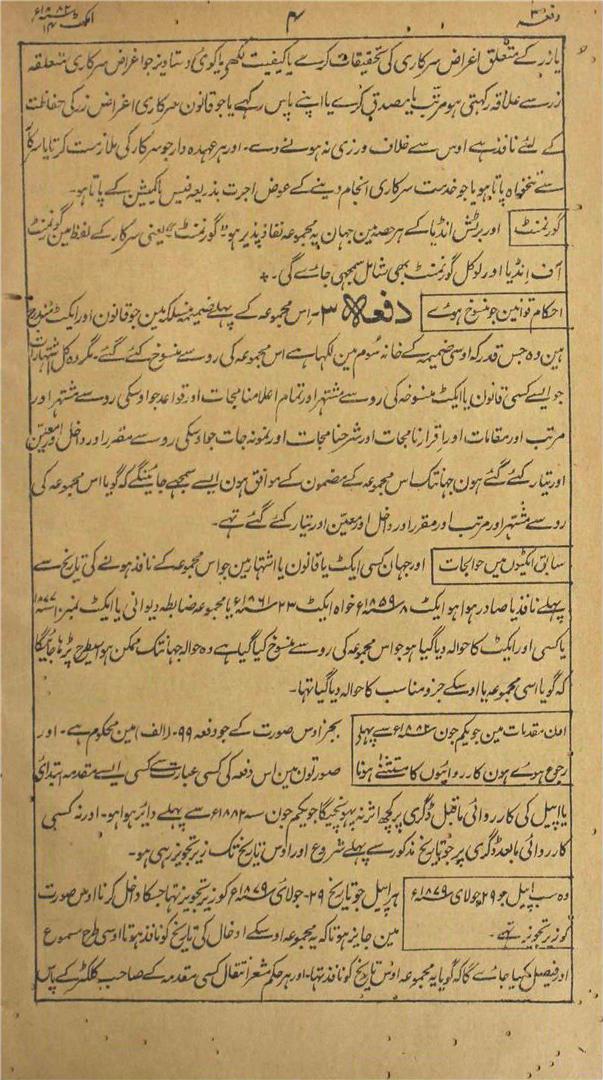 دفعہ ۳ ۴ ایکٹ ۱۴ ۱۸۸۲ء
یا زر کے متعلق اغراض سرکاری کی تحقیقات کرے یا کیفیت لکھے یا کوئی دستاویز جو اغراض سرکاری متعلقہ
زر سے علاقہ رکہتی ہو مرتب یا مصدق کرے یا اپنے پاس رکہے یا جو قانون سرکاری اغراض زر کی حفاظت
کے لئے نافذ ہے اوس سے خلاف ورزی نہ ہونے دے۔ اور ہر عہدہ دار جو سرکار کی ملازمت کرتا یا سرکار
سے تنخواہ پاتا ہو یا جو خدمت سرکاری انجام دینے کے عوض اجرت بذریعہ فیس یا کمیشن کے پاتا ہو۔
گورنمنٹ اور برٹش انڈیا کے ہر حصہ مین جہان یہ مجموعہ نفاذ پذیر ہو "گورنمنٹ" یعنی سرکار کے لفظ مین گورنمنٹ
آف انڈیا اور لوکل گورنمنٹ بھی شامل سمجھی جائے گی۔
احکام قوانین جو منسوخ ہوئے دفعہ ۳۔ اس مجموعہ کے پہلے ضمیمہ منسلکہ مین جو قانون اور ایکٹ مندرج
ہین وہ جس قدر کہ اوسی ضمیمہ کے خانہ سوم مین لکہا ہے اس مجموعہ کی رو سے منسوخ کئے گئے۔ مگر وہ کل اشتہارات
جو ایسے کسی قانون یا ایکٹ منسوخہ کی رو سے مشتہر اور تمام اعلامنامجات اور قواعد جو اوسکی رو سے مشتہر اور
مرتب اور مقامات اور اقرارنامجات اور شرحنامجات اور نمونہ جات جو اوسکی رو سے مقرر اور داخل اور معین
اور تیار کئے گئے ہون جہانتک اس مجموعہ کے مضمون کے موافق ہون ایسے سمجھے جائینگے کہ گویا اس مجموعہ کی
رو سے مشتہر اور مرتب اور مقرر اور داخل اور معین اور تیار کئے گئے تہے۔
سابق ایکٹون میں حوالجات اور جہان کسی ایکٹ یا قانون یا اشتہار مین جو اس مجموعہ کے نافذ ہونے کی تاریخ سے
پہلے نافذ یا صادر ہوا ہو ایکٹ ۸ ۱۸۵۹ء خواہ ایکٹ ۲۳ ۱۸۶۱ء یا مجموعہ ضابطہ دیوانی یا ایکٹ نمبر ۱۰ ۱۸۷۷ء
یا کسی اور ایکٹ کا حوالہ دیا گیا ہو جو اس مجموعہ کی رو سے منسوخ کیا گیا ہے وہ حوالہ جہانتک ممکن ہو اسطرح پڑھا جائیگا
کہ گویا اسی مجموعہ یا اوسکے جزو مناسب کا حوالہ دیا گیا تہا۔
اون مقدمات مین جو یکم جون ۱۸۸۲ء سے پہلے بجز اوس صورت کے جو دفعہ ۹۹۔ (الف) مین محکوم ہے۔ اور
رجوع ہوئے ہون کارروائیوں کا مستثنے ہونا صورتون مین اس دفعہ کی کسی عبارت سے کسی ایسے مقدمہ ابتدائی
یا اپیل کی کارروائی ماقبل ڈگری پر کچھ اثر نہ پہونچیگا جو یکم جون سنہ ۱۸۸۲ء سے پہلے دائر ہوا ہو۔ اور نہ کسی
کارروائی مابعد ڈگری پر جو تاریخ مذکور سے پہلے شروع اور اوس تاریخ تک زیر تجویز رہی ہو۔
وہ سب اپیل جو ۲۹ جولائی ۱۸۷۹ء ہر اپیل جو تاریخ ۲۹۔ جولائی ۱۸۷۹ء کو زیر تجویز تہا جسکا داخل کرنا اوس صورت
کو زیر تجویز تہے۔ مین جائز ہوتا کہ یہ مجموعہ اوسکے ادخال کی تاریخ کو نافذ ہوتا اوسی طرح مسموع
اور فیصل کیا جائے گا کہ گویا یہ مجموعہ اوس تاریخ کو نافذ تہا۔ اور ہر حکم مشعر انتقال کسی مقدمہ کے صاحب کلکٹر کے پاس